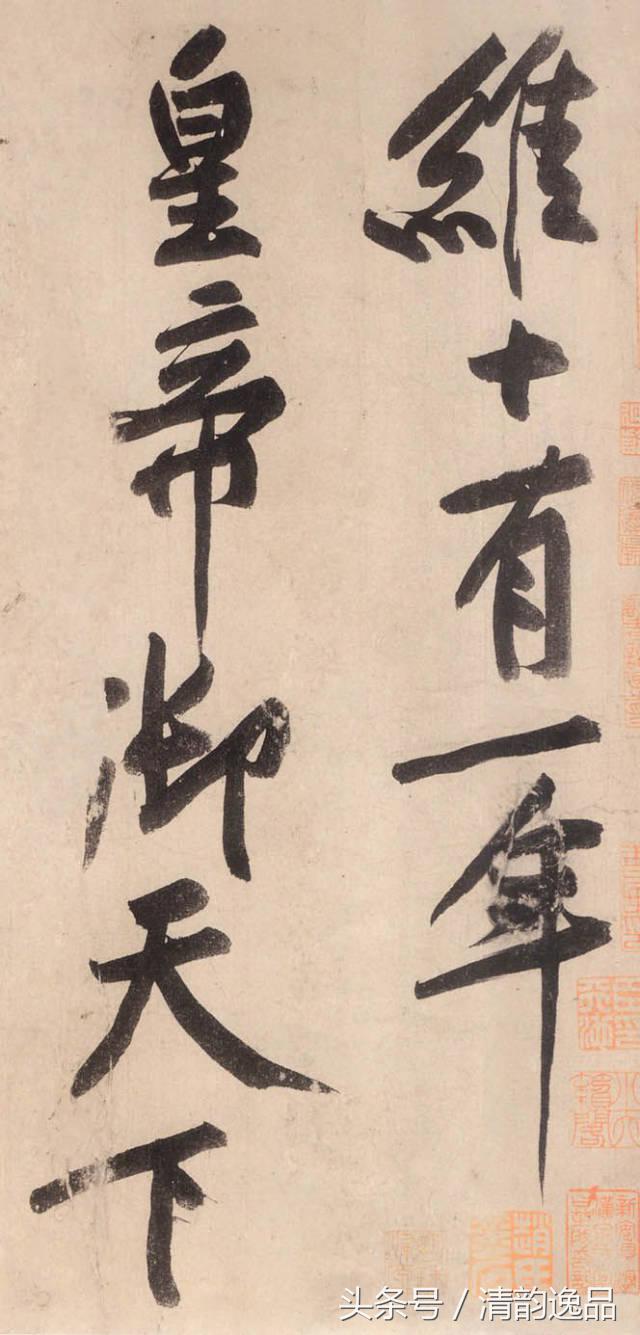 維十有一年
皇帝御天下
头条号 / 清韵逸品